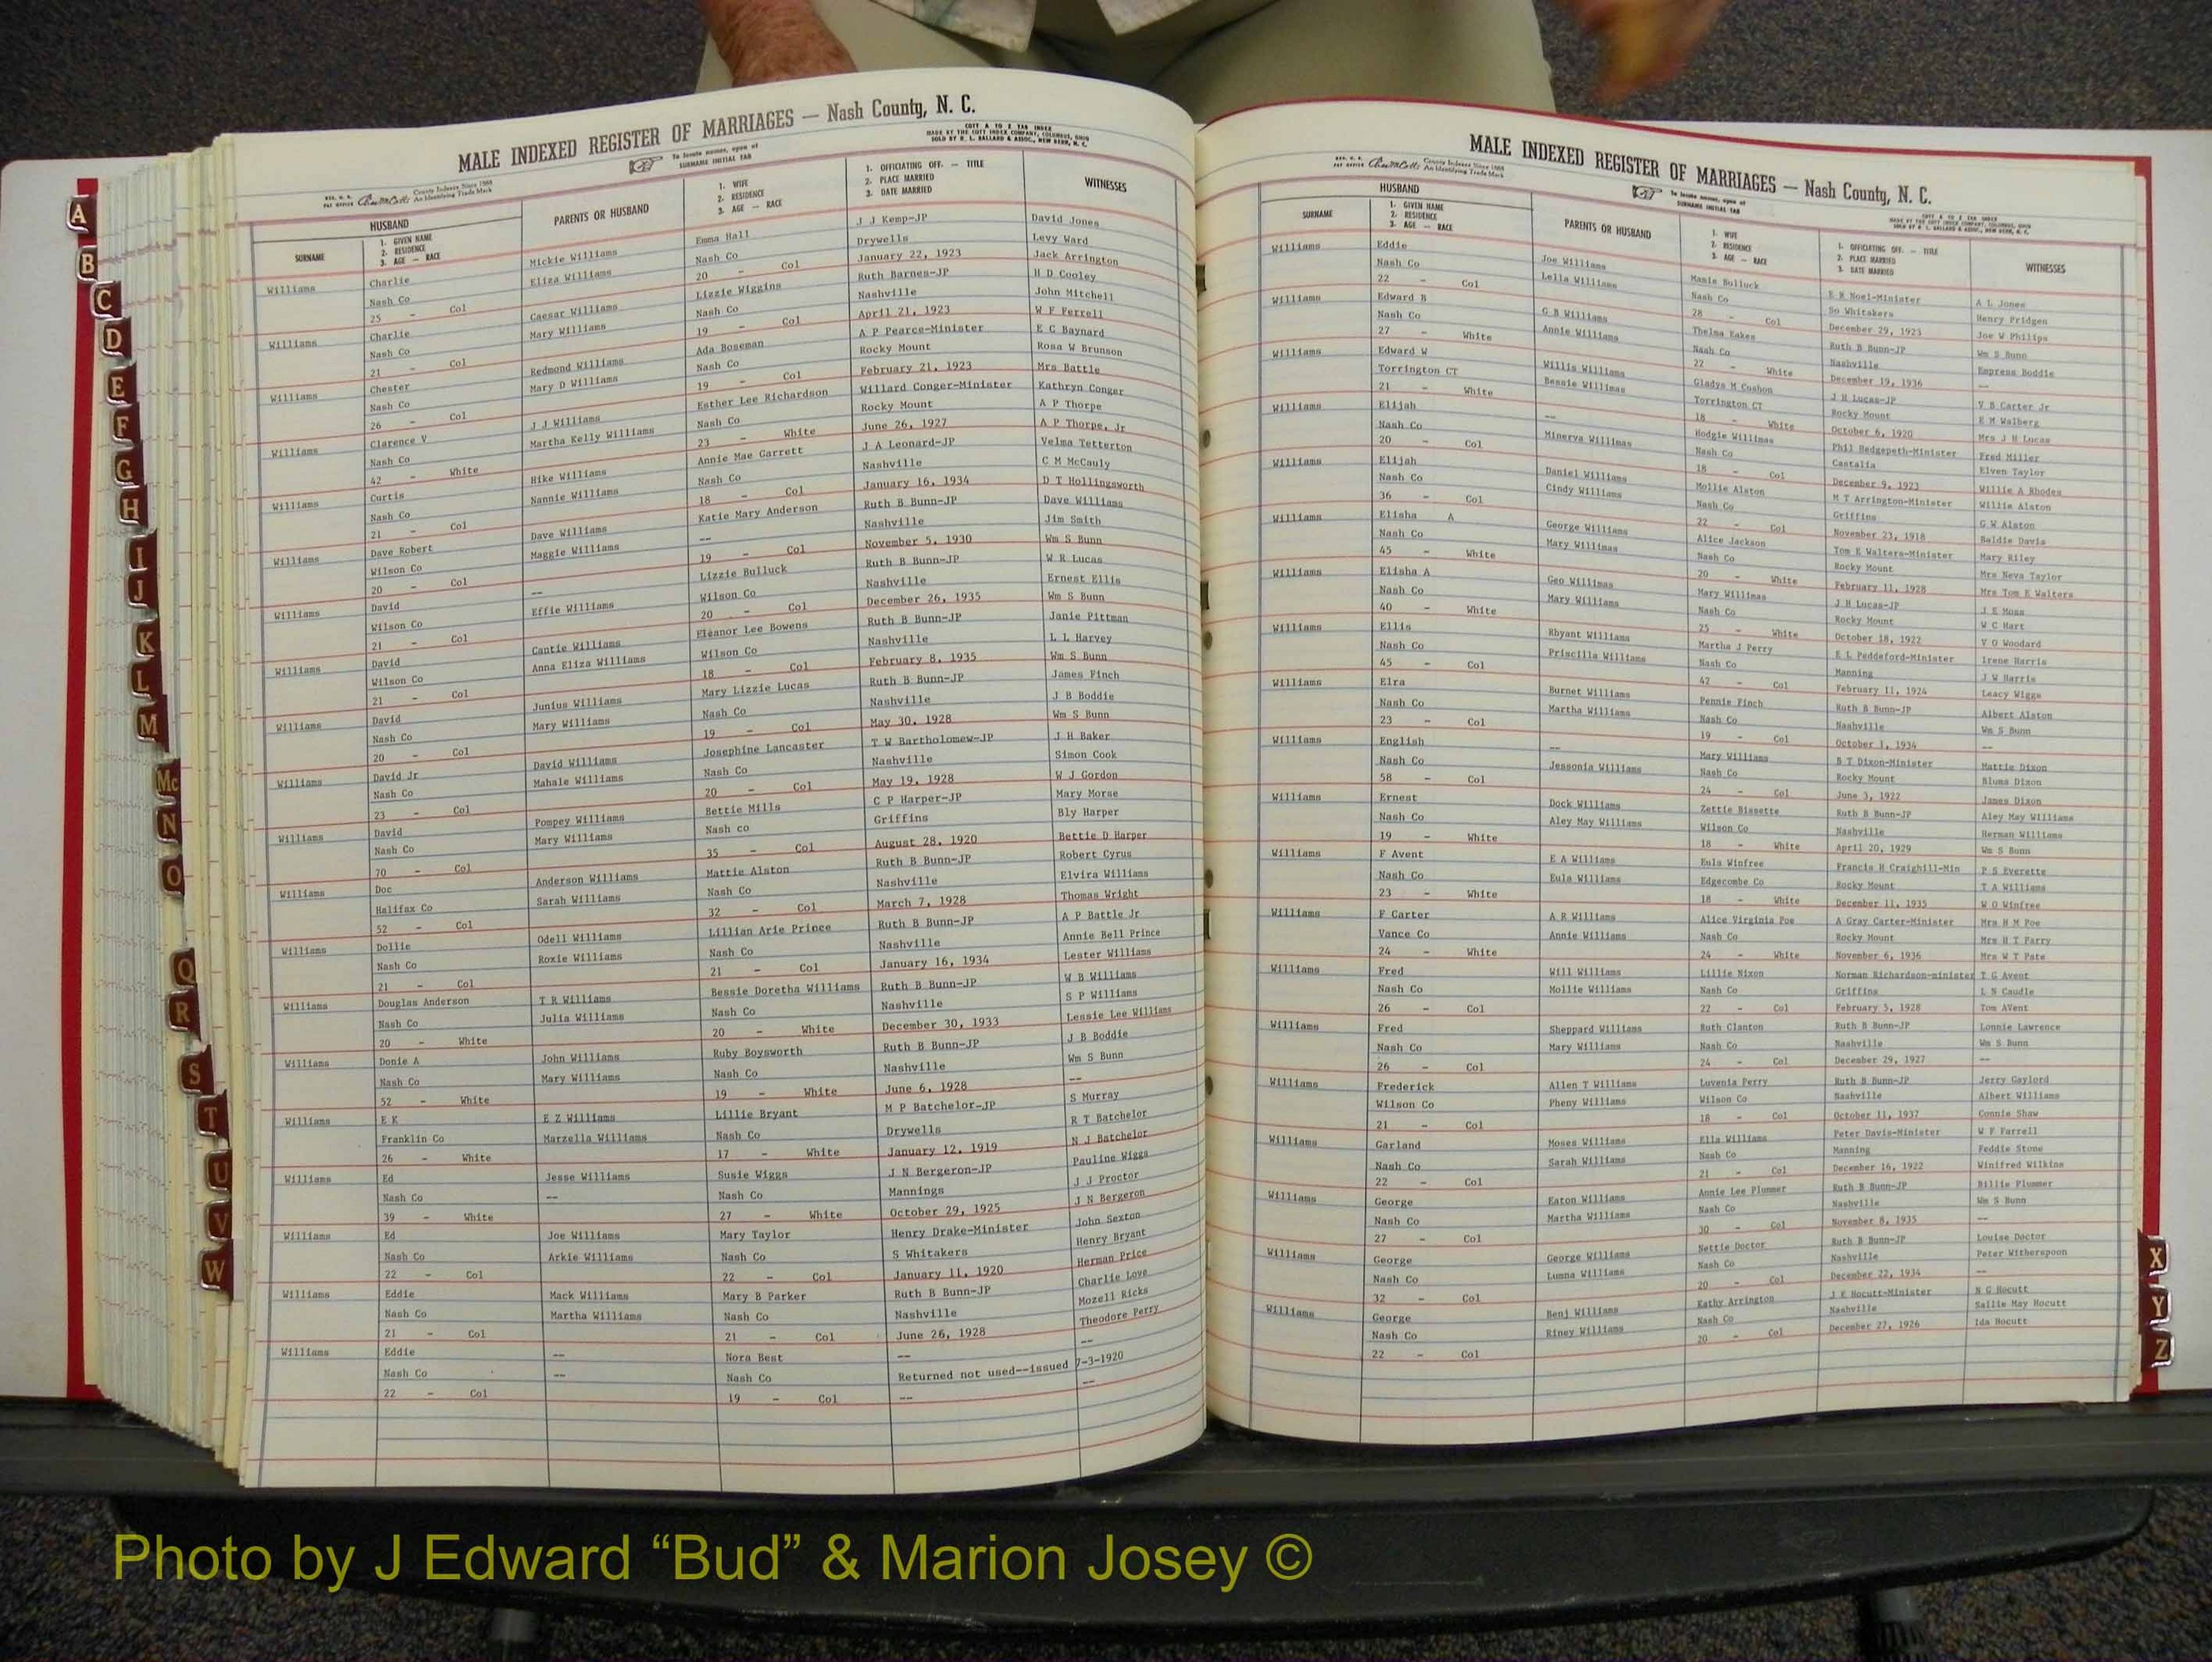 MALE INDEXED REGISTER OF MARRIAGES — Nash County, N. C.
COTT A TO Z TAB INDEX
MADE BY THE COTT INDEX COMPANY, COLUMBUS, OHIO
SOLD BY R. L. BALLARD & ASSOC., NEW BERN, N. C.
To locate names, open at
SURNAME INITIAL TAB
County Indexes Since 1888
An Identifying Trade Mark
HUSBAND PARENTS OR HUSBAND 1. WIFE 1. OFFICIATING OFF. — TITLE WITNESSES
SURNAME 1. GIVEN NAME 2. RESIDENCE 2. PLACE MARRIED
2. RESIDENCE 3. AGE — RACE 3. DATE MARRIED
3. AGE — RACE
Williams Charlie Mickie Williams Emma Hall J J Kemp-JP David Jones
Nash Co Eliza Williams Nash Co Drywells Levy Ward
25 - Col 20 - Col January 22, 1923 Jack Arrington
Williams Charlie Caesar Williams Lizzie Wiggins Ruth Barnes-JP H D Cooley
Nash Co Mary Williams Nash Co Nashville John Mitchell
21 - Col 19 - Col April 21, 1923 W F Ferrell
Williams Chester Redmond Williams Ada Boseman A P Pearce-Minister E C Baynard
Nash Co Mary D Williams Nash Co Rocky Mount Rosa W Brunson
26 - Col 19 - Col February 21, 1923 Mrs Battle
Williams Clarence V J J Williams Esther Lee Richardson Willard Conger-Minister Kathryn Conger
Nash Co Martha Kelly Williams Nash Co Rocky Mount A P Thorpe
42 - White 23 - White June 26, 1927 A P Thorpe, Jr
Williams Curtis Hike Williams Annie Mae Garrett J A Leonard-JP Velma Tetterton
Nash Co Nannie Williams Nash Co Nashville C M McCauly
21 - Col 18 - Col January 16, 1934 D T Hollingsworth
Williams Dave Robert Dave Williams Katie Mary Anderson Ruth B Bunn-JP Dave Williams
Wilson Co Maggie Williams -- Nashville Jim Smith
20 - Col 19 - Col November 5, 1930 Wm S Bunn
Williams David -- Lizzie Bulluck Ruth B Bunn-JP W R Lucas
Wilson Co Effie Williams Wilson Co Nashville Ernest Ellis
21 - Col 20 - Col December 26, 1935 Wm S Bunn
Williams David Cantie Williams Eleanor Lee Bowens Ruth B Bunn-JP Janie Pittman
Wilson Co Anna Eliza Williams Wilson Co Nashville L L Harvey
21 - Col 18 - Col February 8, 1935 Wm S Bunn
Williams David Junius Williams Mary Lizzie Lucas Ruth B Bunn-JP James Finch
Nash Co Mary Williams Nash Co Nashville J B Boddie
20 - Col 19 - Col May 30, 1928 Wm S Bunn
Williams David Jr David Williams Josephine Lancaster T W Bartholomew-JP J H Baker
Nash Co Mahale Williams Nash Co Nashville Simon Cook
23 - Col 20 - Col May 19, 1928 W J Gordon
Williams David Pompey Williams Bettie Mills C P Harper-JP Mary Morse
Nash Co Mary Williams Nash co Griffins Bly Harper
70 - Col 35 - Col August 28, 1920 Bettie D Harper
Williams Doc Anderson Williams Mattie Alston Ruth B Bunn-JP Robert Cyrus
Halifax Co Sarah Williams Nash Co Nashville Elvira Williams
52 - Col 32 - Col March 7, 1928 Thomas Wright
Williams Dollie Odell Williams Lillian Arie Prince Ruth B Bunn-JP A P Battle Jr
Nash Co Roxie Williams Nash Co Nashville Annie Bell Prince
21 - Col 21 - Col January 16, 1934 Lester Williams
Williams Douglas Anderson T R Williams Bessie Doretha Williams Ruth B Bunn-JP W B Williams
Nash Co Julia Williams Nash Co Nashville S P Williams
20 - White 20 - White December 30, 1933 Lessie Lee Williams
Williams Donie A John Williams Ruby Boysworth Ruth B Bunn-JP J B Boddie
Nash Co Mary Williams Nash Co Nashville Wm S Bunn
52 - White 19 - White June 6, 1928 --
Williams E K E Z Williams Lillie Bryant M P Batchelor-JP S Murray
Franklin Co Marzella Williams Nash Co Drywells R T Batchelor
26 - White 17 - White January 12, 1919 N J Batchelor
Williams Ed Jesse Williams Susie Wiggs J N Bergeron-JP Pauline Wiggs
Nash Co -- Nash Co Mannings J J Proctor
39 - White 27 - White October 29, 1925 J N Bergeron
Williams Ed Joe Williams Mary Taylor Henry Drake-Minister John Sexton
Nash Co Arkie Williams Nash Co S Whitakers Henry Bryant
22 - Col 22 - Col January 11, 1920 Herman Price
Williams Eddie Mack Williams Mary B Parker Ruth B Bunn-JP Charlie Love
Nash Co Martha Williams Nash Co Nashville Mozell Ricks
21 - Col 21 - Col June 26, 1928 Theodore Perry
Williams Eddie -- Nora Best -- --
Nash Co -- Nash Co Returned not used--issued 7-3-1920
22 - Col 19 - Col -- --
MALE INDEXED REGISTER OF MARRIAGES — Nash County, N. C.
County Indexes Since 1888
An Identifying Trade Mark
To locate names, open at
SURNAME INITIAL TAB
COTT A TO Z TAB INDEX
MADE BY THE COTT INDEX COMPANY, COLUMBUS, OHIO
SOLD BY R. L. BALLARD & ASSOC., NEW BERN, N. C.
HUSBAND PARENTS OR HUSBAND 1. WIFE 1. OFFICIATING OFF. — TITLE WITNESSES
SURNAME 1. GIVEN NAME 2. RESIDENCE 2. PLACE MARRIED
2. RESIDENCE 3. AGE — RACE 3. DATE MARRIED
3. AGE — RACE
Williams Eddie Joe Williams Mamie Bulluck E R Noel-Minister A L Jones
Nash Co Lella Williams Nash Co So Whitakers Henry Pridgen
22 - Col 28 - Col December 29, 1923 Joe W Philips
Williams Edward B G B Williams Thelma Eakes Ruth B Bunn-JP Wm S Bunn
Nash Co Annie Williams Nash Co Nashville Empress Boddie
27 - White 22 - White December 19, 1936 --
Williams Edward W Willis Williams Gladys M Cushon J H Lucas-JP V B Carter Jr
Torrington CT Bessie Willimas Torrington CT Rocky Mount E M Walberg
21 - White 18 - White October 6, 1920 Mrs J H Lucas
Williams Elijah -- Hodgie Willimas Phil Hedgepeth-Minister Fred Miller
Nash Co Minerva Willimas Nash Co Castalia Elven Taylor
20 - Col 18 - Col December 9, 1923 Willie A Rhodes
Williams Elijah Daniel Williams Mollie Alston M T Arrington-Minister Willie Alston
Nash Co Cindy Williams Nash Co Griffins G W Alston
36 - Col 22 - Col November 23, 1918 Baldie Davis
Williams Elisha A George Williams Alice Jackson Tom E Walters-Minister Mary Riley
Nash Co Mary Willimas Nash Co Rocky Mount Mrs Neva Taylor
45 - White 20 - White February 11, 1928 Mrs Tom E Walters
Williams Elisha A Geo Willimas Mary Willimas J H Lucas-JP J E Moss
Nash Co Mary Williams Nash Co Rocky Mount W C Hart
40 - White 25 - White October 18, 1922 V O Woodard
Williams Ellis Rhyant Williams Martha J Perry E L Peddeford-Minister Irene Harris
Nash Co Priscilla Williams Nash Co Manning J W Harris
45 - Col 42 - Col February 11, 1924 Leacy Wiggs
Williams Elra Burnet Williams Pennie Finch Ruth B Bunn-JP Albert Alston
Nash Co Martha Williams Nash Co Nashville Wm S Bunn
23 - Col 19 - Col October 1, 1934 --
Williams English -- Mary Williams B T Dixon-Minister Mattie Dixon
Nash Co Jessonia Williams Nash Co Rocky Mount Bluma Dixon
58 - Col 24 - Col June 3, 1922 James Dixon
Williams Ernest Dock Williams Zettie Bissette Ruth B Bunn-JP Aley May Williams
Nash Co Aley May Williams Wilson Co Nashville Herman Williams
19 - White 18 - White April 20, 1929 Wm S Bunn
Williams F Avent E A Williams Eula Winfree Francis H Craighill-Min P S Everette
Nash Co Eula Williams Edgecombe Co Rocky Mount T A Williams
23 - White 18 - White December 11, 1935 W O Winfree
Williams F Carter A R Williams Alice Virginia Poe A Gray Carter-Minister Mrs H M Poe
Vance Co Annie Williams Nash Co Rocky Mount Mrs H T Parry
24 - White 24 - White November 6, 1936 Mrs W T Pate
Williams Fred Will Williams Lillie Nixon Norman Richardson-minister T G Avent
Nash Co Mollie Williams Nash Co Griffins L N Caudle
26 - Col 22 - Col February 5, 1928 Tom AVent
Williams Fred Sheppard Williams Ruth Clanton Ruth B Bunn-JP Lonnie Lawrence
Nash Co Mary Williams Nash Co Nashville Wm S Bunn
26 - Col 24 - Col December 29, 1927 --
Williams Frederick Allen T Williams Luvenia Perry Ruth B Bunn-JP Jerry Gaylord
Wilson Co Pheny Williams Wilson Co Nashville Albert Williams
21 - Col 18 - Col October 11, 1937 Connie Shaw
Williams Garland Moses Williams Ella Williams Peter Davis-Minister W F Farrell
Nash Co Sarah Williams Nash Co Manning Feddie Stone
22 - Col 21 - Col December 16, 1922 Winifred Wilkins
Williams George Eaton Williams Annie Lee Plummer Ruth B Bunn-JP Billie Plummer
Nash Co Martha Williams Nash Co Nashville Wm S Bunn
27 - Col 30 - Col November 8, 1935 --
Williams George George Williams Nettie Doctor Ruth B Bunn-JP Louise Doctor
Nash Co Lumna Williams Nash Co Nashville Peter Witherspoon
32 - Col 20 - Col December 22, 1934 --
Williams George Benj Williams Kathy Arrington J E Hocutt-Minister N G Hocutt
Nash Co Riney Williams Nash Co Nashville Sallie May Hocutt
22 - Col 20 - Col December 27, 1926 Ida Hocutt
A
B
C
D
E
F
G
H
I
J
K
L
M
Mc
N
O
Q
R
S
T
U
V
W
X
Y
Z
Photo by J Edward “Bud” & Marion Josey ©